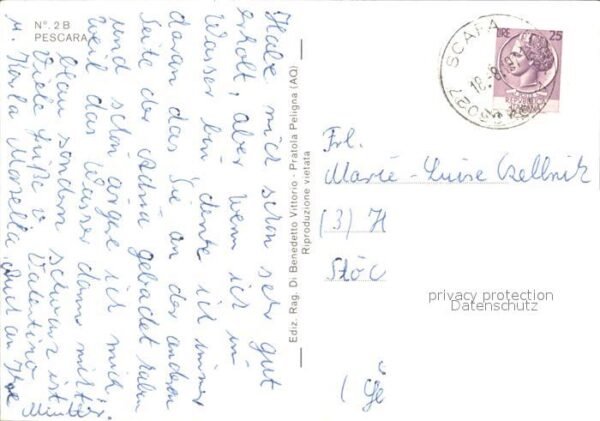 N°. 2 B
PESCARA
Habe mich schon sehr gut
erholt, aber wenn ich in
Wasser bin, denke ich immer
daran das Sie an der anderen
Seite der Adria gebadet haben
und schon ärgere ich mich
weil das Wasser dann nicht
blau sondern schwarz ist.
Viele Grüße v. Valentino
u. Marsella, auch an Ihre
Mutter
Ediz. Rag. Di Benedetto Vittorio - Pratola Peligna (AQ)
Riproduzione vietata
SCAFA
65027
LIRE 25
Frl.
Marie-Luise Czellnik
(3) H
Stöc
privacy protection
Datenschutz
(Ge